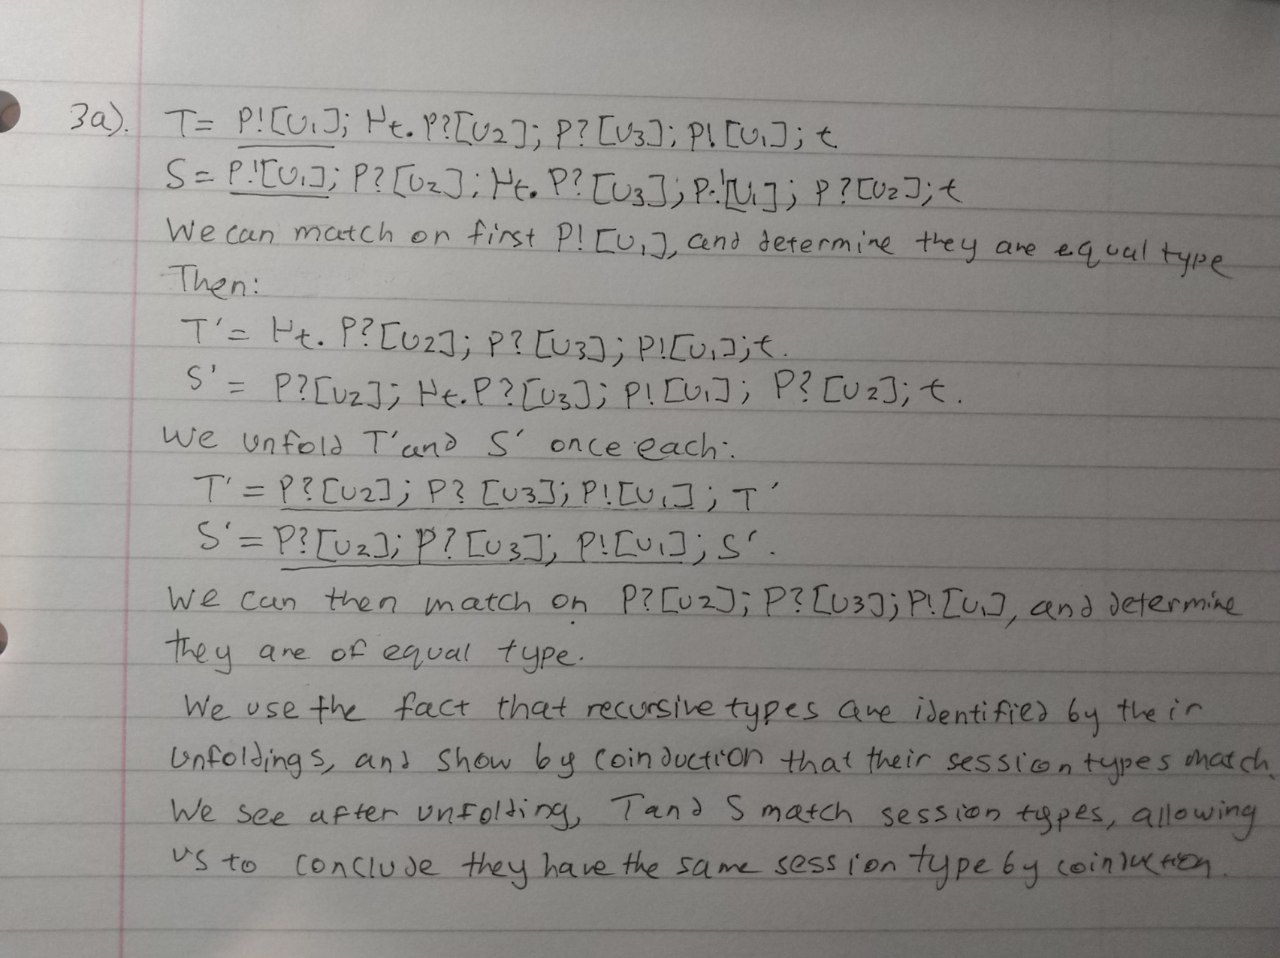 3a). T= P![U₁]; μt. P?[U₂]; P?[U₃]; P![U₁]; t
S= P![U₁]; P?[U₂]; μt. P?[U₃]; P![U₁]; P?[U₂]; t
We can match on first P![U₁], and determine they are equal type
Then:
T'= μt. P?[U₂]; P?[U₃]; P![U₁]; t.
S' = P?[U₂]; μt. P?[U₃]; P![U₁]; P?[U₂]; t.
We unfold T' and S' once each:
T' = P?[U₂]; P?[U₃]; P![U₁]; T'
S' = P?[U₂]; P?[U₃]; P![U₁]; S'.
We can then match on P?[U₂]; P?[U₃]; P![U₁], and determine
they are of equal type.
We use the fact that recursive types are identified by their
unfoldings, and show by coinduction that their session types match.
We see after unfolding, T and S match session types, allowing
us to conclude they have the same session type by coinduction.